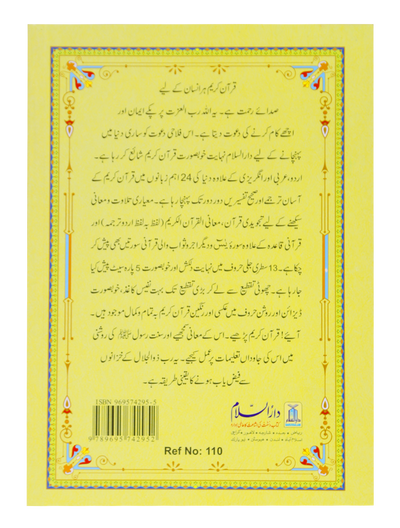 قرآن کریم ہر انسان کے لیے
صدائے رحمت ہے۔ یہ اللہ رب العزت پر پکے ایمان اور
اچھے کام کرنے کی دعوت دیتا ہے۔ اس فلاحی دعوت کو ساری دنیا میں
پہنچانے کے لیے دارالسلام نہایت خوبصورت قرآن کریم شائع کر رہا ہے۔
اردو، عربی اور انگریزی کے علاوہ دنیا کی 24 اہم زبانوں میں قرآن کریم کے
آسان ترجمے اور صحیح تفسیریں دور دور تک پہنچا رہا ہے۔ معیاری تلاوت و معانی
سیکھنے کے لیے تجویدی قرآن، معانی القرآن الکریم (لفظ بہ لفظ اردو ترجمہ) اور
قرآنی قاعدہ کے علاوہ سورۂ یٰسٓ و دیگر اجر و ثواب والی قرآنی سورتیں بھی پیش کر
چکا ہے۔ 13 سطری جلی حروف میں نہایت دلکش اور خوبصورت 5 پارہ سیٹ پیش کیا
جا رہا ہے۔ چھوٹی تقطیع سے لے کر بڑی تقطیع تک بہت نفیس کاغذ، خوبصورت
ڈیزائن اور روشن حروف میں عکسی اور رنگین قرآن کریم بہ تمام و کمال موجود ہیں۔
آیئے! قرآن کریم پڑھیے۔ اس کے معانی سمجھیے اور سنت رسول ﷺ کی روشنی
میں اس کی جاوداں تعلیمات پر عمل کیجیے۔ یہ رب ذوالجلال کے خزانوں
سے فیض یاب ہونے کا یقینی طریقہ ہے۔
ISBN 969574295-5
9789695742952
دارالسلام
Ref No: 110